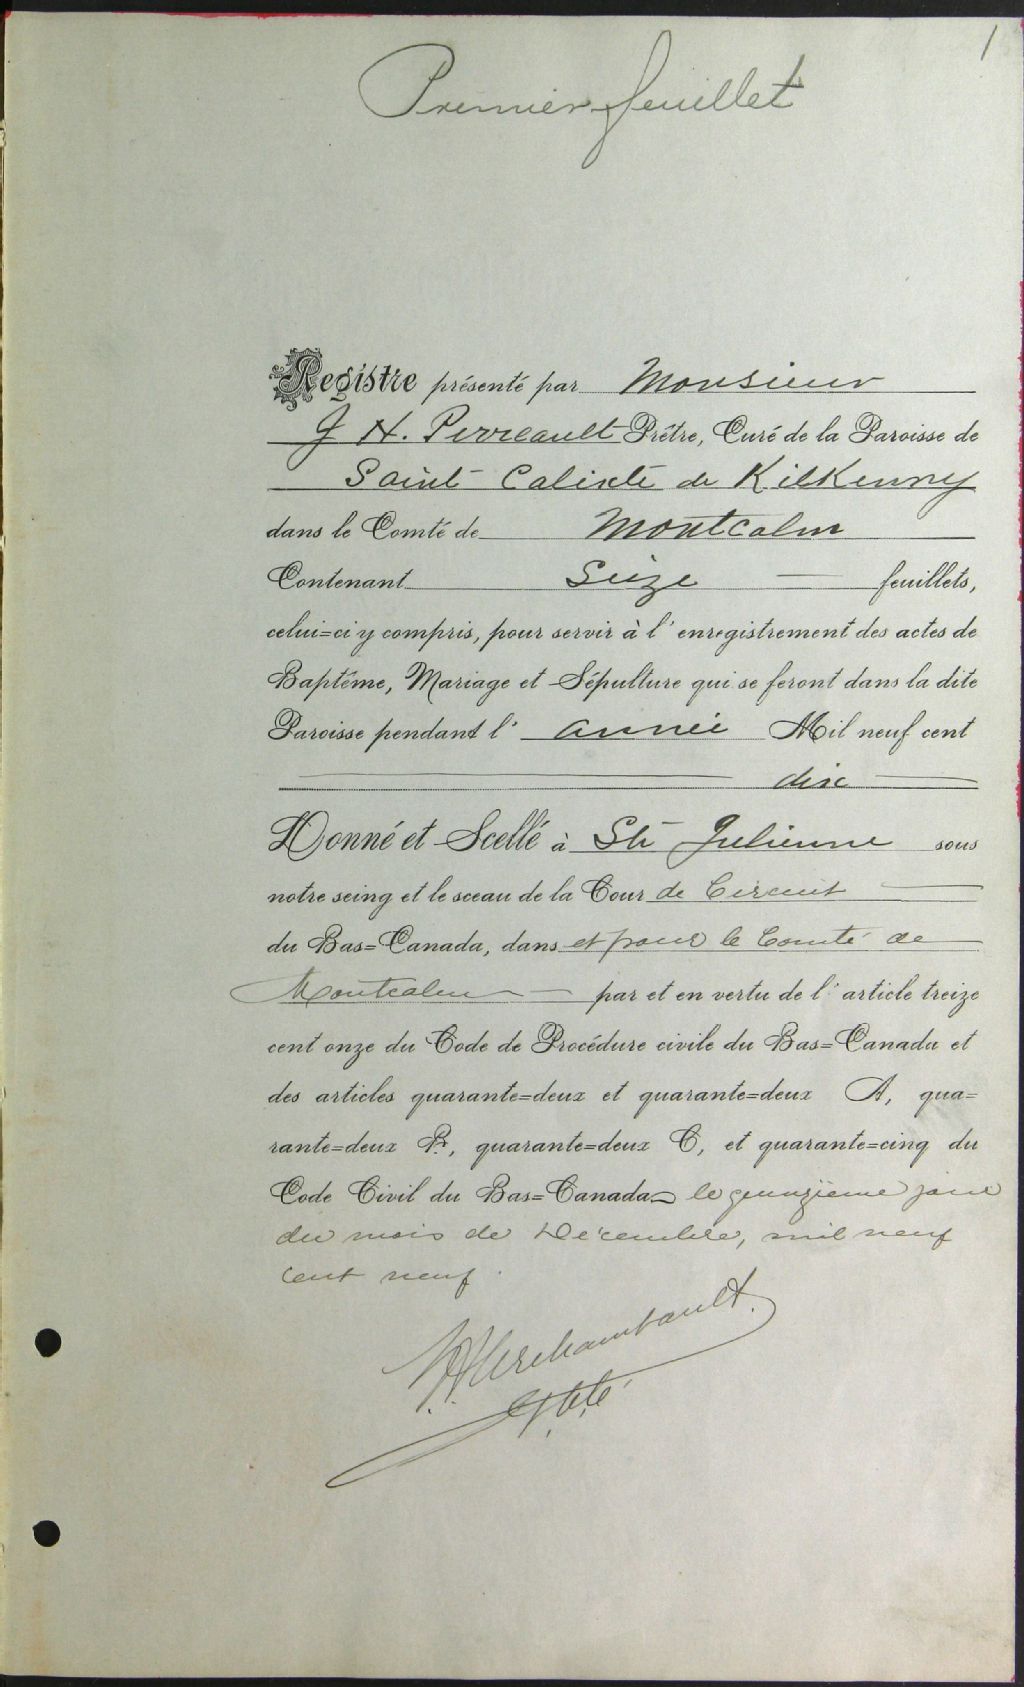 1
Premier feuillet
Registre présenté par Monsieur
J H. Perreault Prêtre, Curé de la Paroisse de
Saint Calixte de Kilkenny
dans le Comté de Montcalm
Contenant Seize feuillets,
celui=ci y compris, pour servir à l'enregistrement des actes de
Baptême, Mariage et Sépulture qui se feront dans la dite
Paroisse pendant l'année Mil neuf cent
dix
Donné et Scellé à Ste Julienne sous
notre seing et le sceau de la Cour de Circuit
du Bas=Canada, dans et pour le Comté de
Montcalm par et en vertu de l'article treize
cent onze du Code de Procédure civile du Bas=Canada et
des articles quarante=deux et quarante=deux A, qua=
rante=deux B, quarante=deux C, et quarante=cinq du
Code Civil du Bas=Canada le quinzième jour
du mois de Décembre, mil neuf
cent neuf.
Archambault